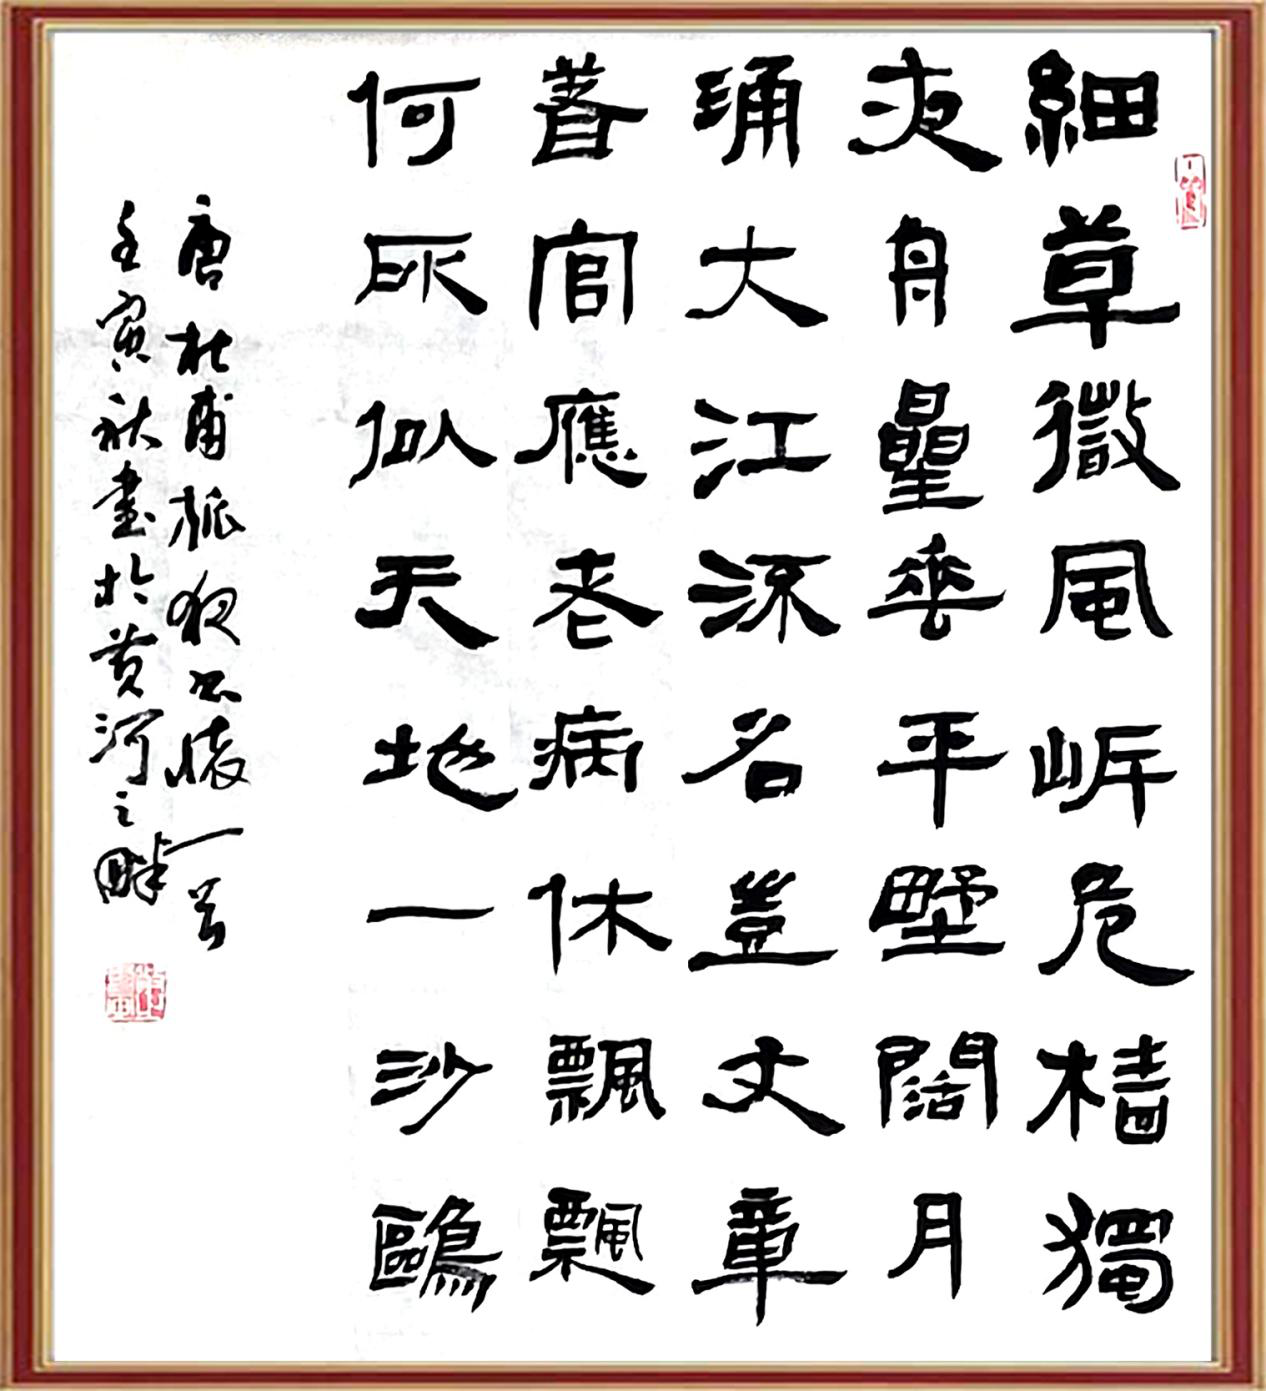 細草微風岸危樯獨
夜舟星垂平野闊月
涌大江流名豈文章
著官應老病休飄飄
何所似天地一沙鷗
唐杜甫旅夜书懷一首
壬寅秋書於黄河之畔